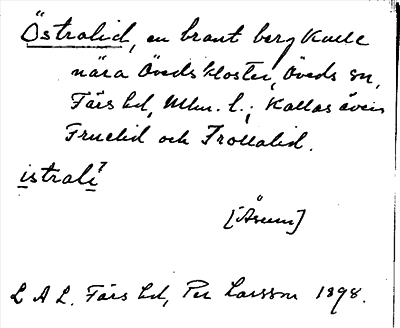 Östralid, en brant bergkulle
nära Övedskloster, Öveds sn,
Färs hd, Mlm. l.; Kallas även
Fruelid och Trollalid.
istrali⁷
[Åsum]
L A L. Färs hd, Per Larsson 1898.